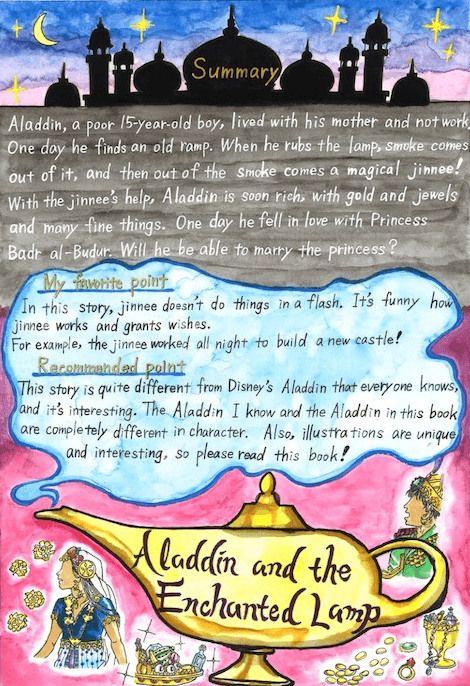 Summary
Aladdin, a poor 15-year-old boy, lived with his mother and not work.
One day he finds an old ramp. When he rubs the lamp, smoke comes
out of it, and then out of the smoke comes a magical jinnee!
With the jinnee's help, Aladdin is soon rich, with gold and jewels
and many fine things. One day he fell in love with Princess
Badr al-Budur. Will he be able to marry the princess?
My favorite point
In this story, jinnee doesn't do things in a flash. It's funny how
jinnee works and grants wishes.
For example, the jinnee worked all night to build a new castle!
Recommended point
This story is quite different from Disney's Aladdin that everyone knows,
and it's interesting. The Aladdin I know and the Aladdin in this book
are completely different in character. Also, illustrations are unique
and interesting, so please read this book!
Aladdin and the
Enchanted Lamp